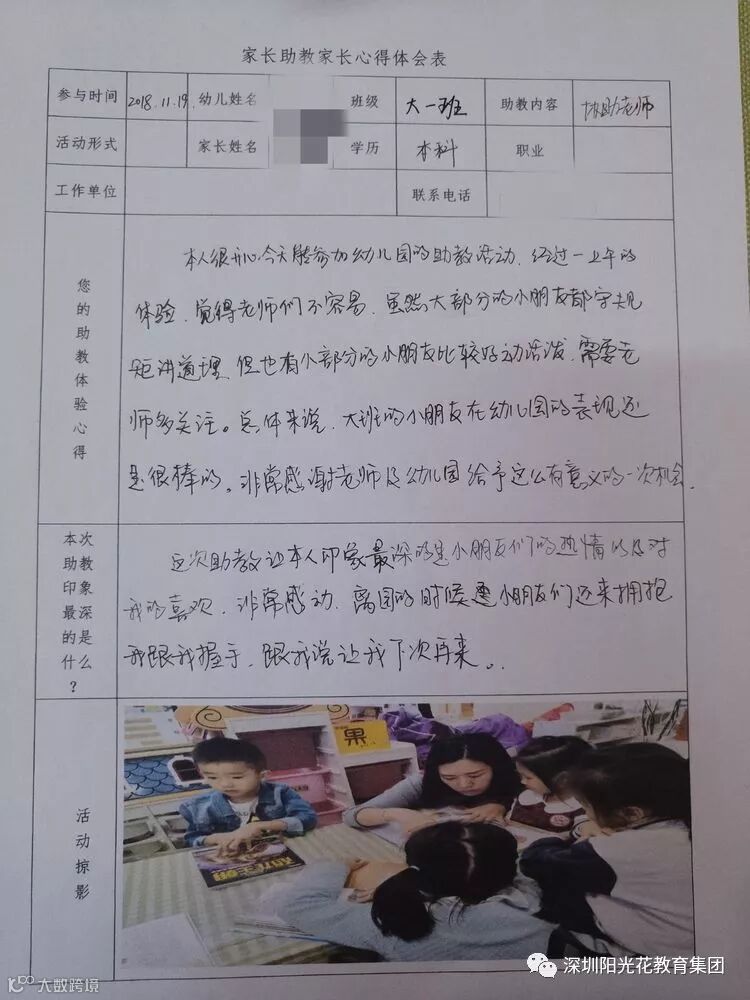 家长助教家长心得体会表
参与时间 2018.11.19. 幼儿姓名 班级 大一班 助教内容 协助老师
活动形式 家长姓名 学历 本科 职业
工作单位 联系电话
您的助教体验心得
本人很开心今天能参加幼儿园的助教活动、经过一上午的
体验、觉得老师们不容易、虽然大部分的小朋友都守规
矩讲道理 但也有小部分的小朋友比较好动活泼、需要老
师多关注。总体来说、大班的小朋友在幼儿园的表现还
是很棒的。非常感谢老师及幼儿园给予这么有意义的一次机会.
本次助教印象最深的是什么？
这次助教让本人印象最深的是小朋友们的热情以及对
我的喜欢、非常感动、离园的时候 小朋友们还来拥抱
我跟我握手、跟我说让我下次再来。
活动掠影
果
深圳阳光花教育集团
大数跨境